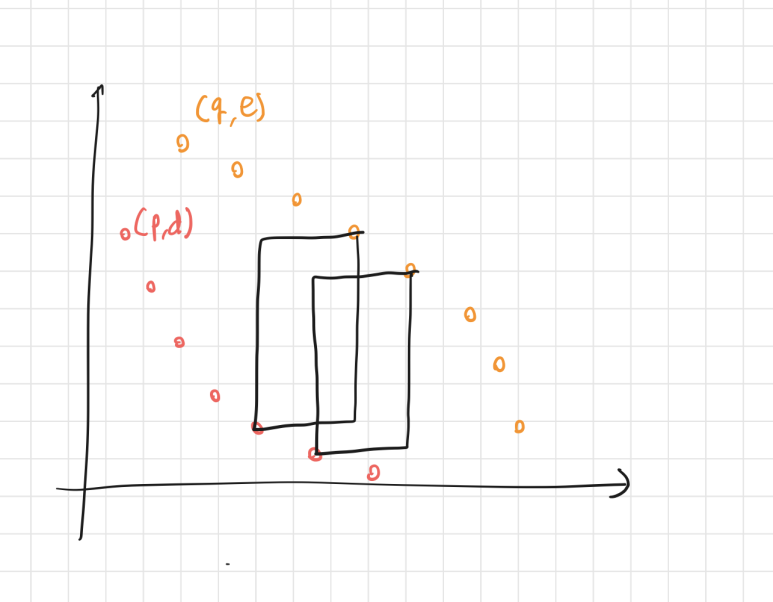 (q,e)
(p,d)